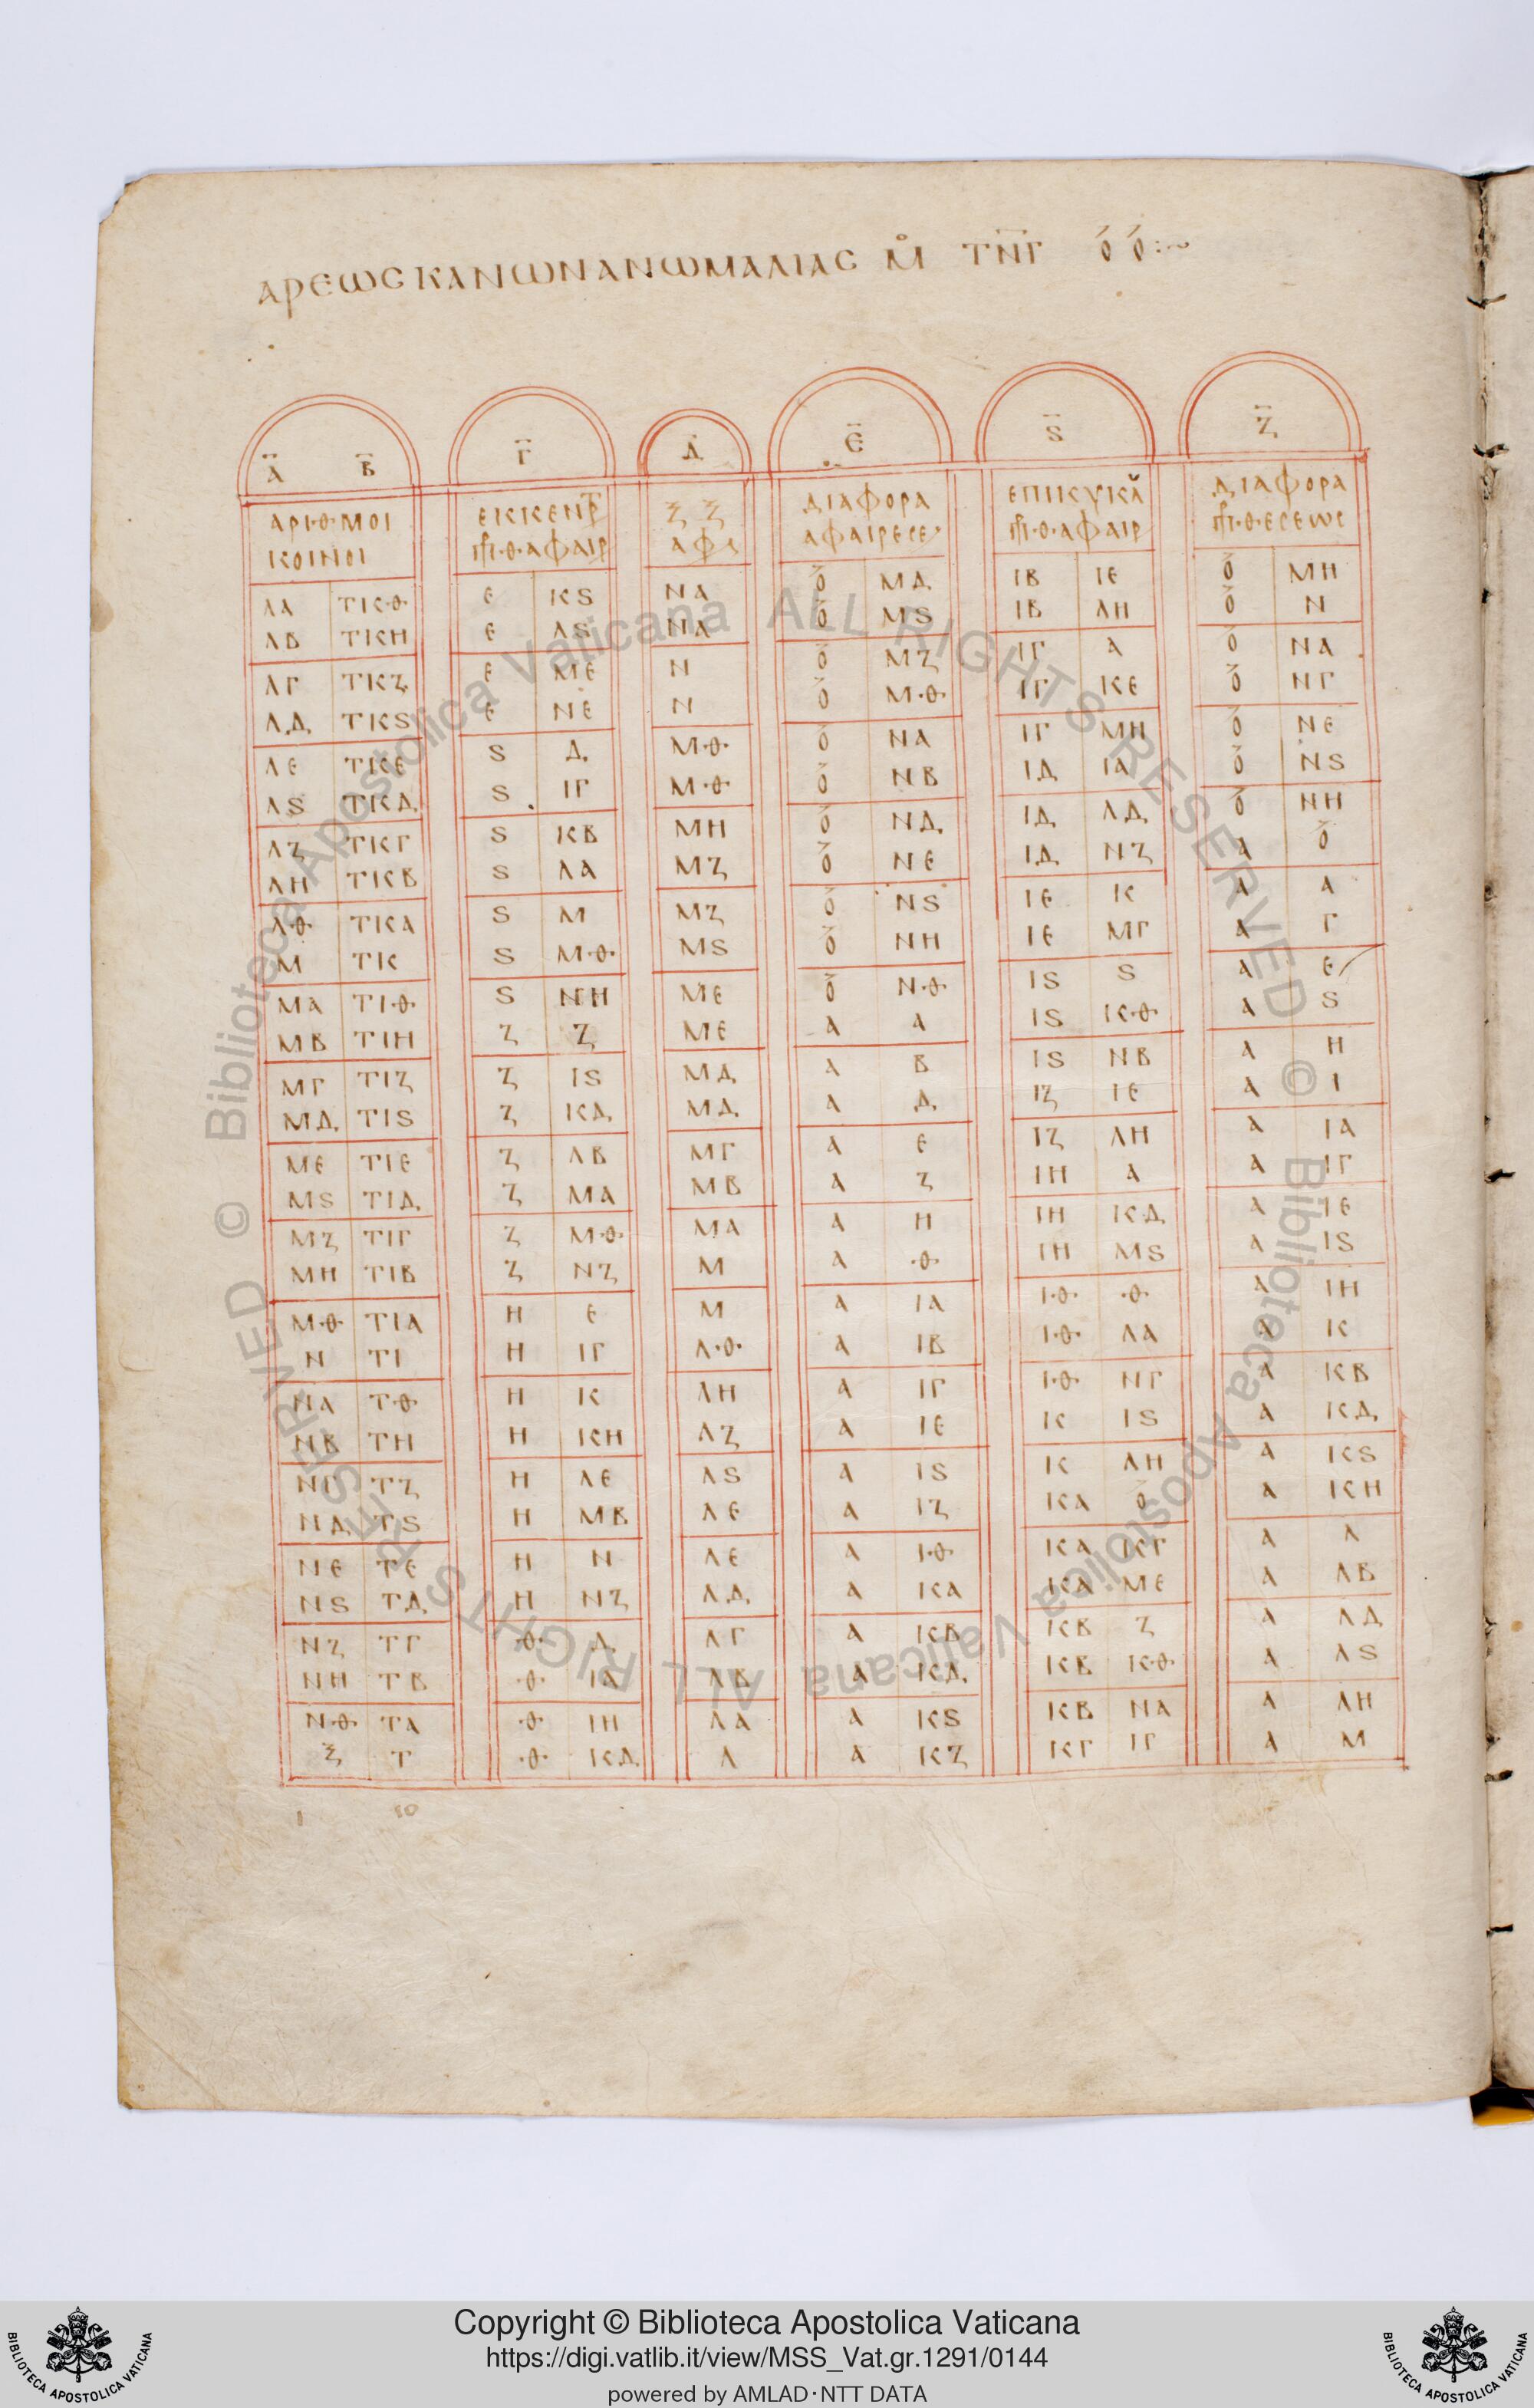 ΑΡΕΩϹ ΚΑΝΩΝ ΑΝΩΜΑΛΙΑϹ Μ° ΤΝΓ Ο Ο :~
Α Β Γ Δ Ε Ϛ Ζ
ΑΡΙΘΜΟΙ ΕΚΚΕΝΤΡ Ξ Ξ ΔΙΑΦΟΡΑ ΕΠΙΚΥΚΛ ΔΙΑΦΟΡΑ
ΚΟΙΝΟΙ ΠΡΘΑΦΑΙΡ ΑΦ ΑΦΑΙΡΕϹΕ ΠΡΘΑΦΑΙΡ ΠΡΘΕϹΕΩϹ
ΛΑ ΤΚΘ Ε ΚϚ ΝΑ Ο ΜΔ ΙΒ ΙΕ Ο ΜΗ
ΛΒ ΤΚΗ Ε ΛϚ ΝΑ Ο ΜϚ ΙΒ ΛΗ Ο Ν
ΛΓ ΤΚΖ Ε ΜΕ Ν Ο ΜΖ ΙΓ Α Ο ΝΑ
ΛΔ ΤΚϚ Ε ΝΕ Ν Ο ΜΘ ΙΓ ΚΕ Ο ΝΓ
ΛΕ ΤΚΕ Ϛ Δ ΜΘ Ο ΝΑ ΙΓ ΜΗ Ο ΝΕ
ΛϚ ΤΚΔ Ϛ ΙΓ ΜΘ Ο ΝΒ ΙΔ ΙΑ Ο ΝϚ
ΛΖ ΤΚΓ Ϛ ΚΒ ΜΗ Ο ΝΔ ΙΔ ΛΔ Ο ΝΗ
ΛΗ ΤΚΒ Ϛ ΛΑ ΜΖ Ο ΝΕ ΙΔ ΝΖ Α Ο
ΛΘ ΤΚΑ Ϛ Μ ΜΖ Ο ΝϚ ΙΕ Κ Α Α
Μ ΤΚ Ϛ ΜΘ ΜϚ Ο ΝΗ ΙΕ ΜΓ Α Γ
ΜΑ ΤΙΘ Ϛ ΝΗ ΜΕ Ο ΝΘ ΙϚ Ϛ Α Ε
ΜΒ ΤΙΗ Ζ Ζ ΜΕ Α Α ΙϚ ΚΘ Α Ϛ
ΜΓ ΤΙΖ Ζ ΙϚ ΜΔ Α Β ΙϚ ΝΒ Α Η
ΜΔ ΤΙϚ Ζ ΚΔ ΜΔ Α Δ ΙΖ ΙΕ Α Ι
ΜΕ ΤΙΕ Ζ ΛΒ ΜΓ Α Ε ΙΖ ΛΗ Α ΙΑ
ΜϚ ΤΙΔ Ζ ΜΑ ΜΒ Α Ζ ΙΗ Α Α ΙΓ
ΜΖ ΤΙΓ Ζ ΜΘ ΜΑ Α Η ΙΗ ΚΔ Α ΙΕ
ΜΗ ΤΙΒ Ζ ΝΖ Μ Α Θ ΙΗ ΜϚ Α ΙϚ
ΜΘ ΤΙΑ Η Ε Μ Α ΙΑ ΙΘ Θ Α ΙΗ
Ν ΤΙ Η ΙΓ ΛΘ Α ΙΒ ΙΘ ΛΑ Α Κ
ΝΑ ΤΘ Η Κ ΛΗ Α ΙΓ ΙΘ ΝΓ Α ΚΒ
ΝΒ ΤΗ Η ΚΗ ΛΖ Α ΙΕ Κ ΙϚ Α ΚΔ
ΝΓ ΤΖ Η ΛΕ ΛϚ Α ΙϚ Κ ΛΗ Α ΚϚ
ΝΔ ΤϚ Η ΜΒ ΛΕ Α ΙΖ ΚΑ Ο Α ΚΗ
ΝΕ ΤΕ Η Ν ΛΕ Α ΙΘ ΚΑ ΚΓ Α Λ
ΝϚ ΤΔ Η ΝΖ ΛΔ Α ΚΑ ΚΑ ΜΕ Α ΛΒ
ΝΖ ΤΓ Θ Δ ΛΓ Α ΚΒ ΚΒ Ζ Α ΛΔ
ΝΗ ΤΒ Θ ΙΑ ΛΒ Α ΚΔ ΚΒ ΚΘ Α ΛϚ
ΝΘ ΤΑ Θ ΙΗ ΛΑ Α ΚϚ ΚΒ ΝΑ Α ΛΗ
Ξ Τ Θ ΚΔ Λ Α ΚΖ ΚΓ ΙΓ Α Μ
© Biblioteca Apostolica Vaticana ALL RIGHTS RESERVED © Biblioteca Apostolica Vaticana ALL RIGHTS RESERVED
Copyright © Biblioteca Apostolica Vaticana
https://digi.vatlib.it/view/MSS_Vat.gr.1291/0144
powered by AMLAD・NTT DATA
BIBLIOTECA APOSTOLICA VATICANA
BIBLIOTECA APOSTOLICA VATICANA